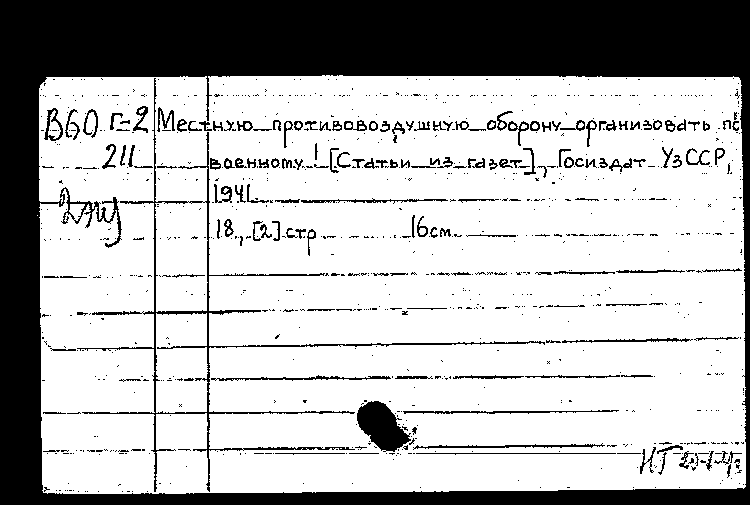 В60 г=2 Местную противовоздушную оборону организовать по
211 военному! [Статьи из газет], Госиздат УзССР,
1941.
2 экз
18, [2] стр 16 см.
НГ